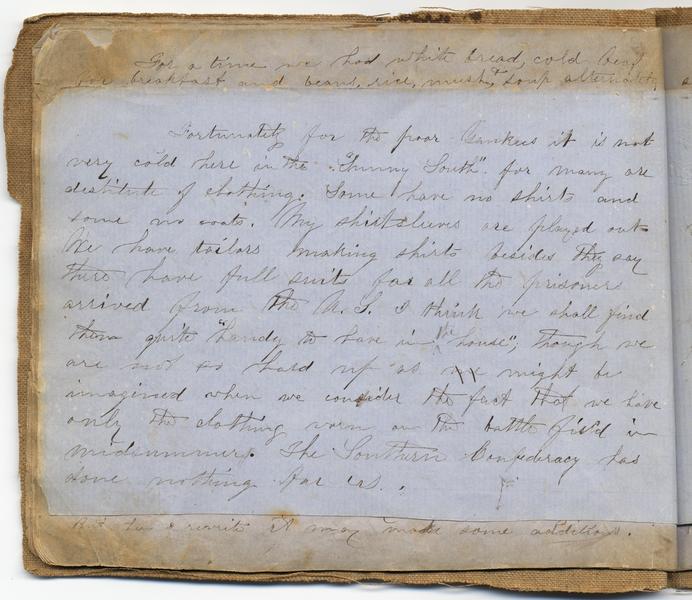 For a time we had white bread, cold beef
for breakfast and beans, rice, mush, & soup alternate,
Fortunately for the poor Yankees it is not
very cold here in the "Sunny South" for many are
destitute of clothing. Some have no shirts and
some no coats. My shirtsleeves are played out
We have tailors making shirts besides they say
there have full suits for all the prisoners
arrived from the U.S. I think we shall find
them quite "handy to have in the house"; though we
are not so hard up as we might be
imagined when we consider the fact that we have
only the clothing worn on the battle field in
midsummer. The Southern Confederacy has
done nothing for us.
I rewrite it may make some additions.